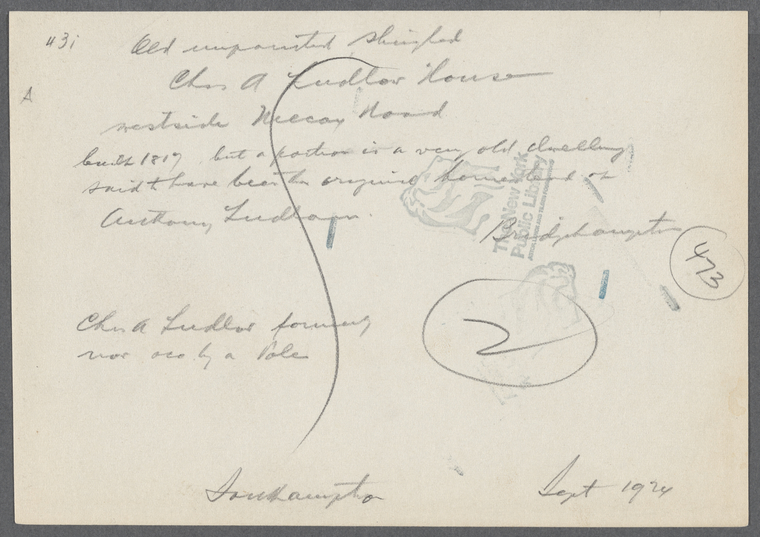 431
A
Old unpainted shingled
Chas A Ludlow House
westside Mecox Road
built 1817 but a portion is a very old dwelling
said to have been the original homestead of
Anthony Ludlow.
Bridgehampton
The New York
Public Library
473
2
Chas A Ludlow formerly
now occ by a Pole
Southampton
Sept 1924